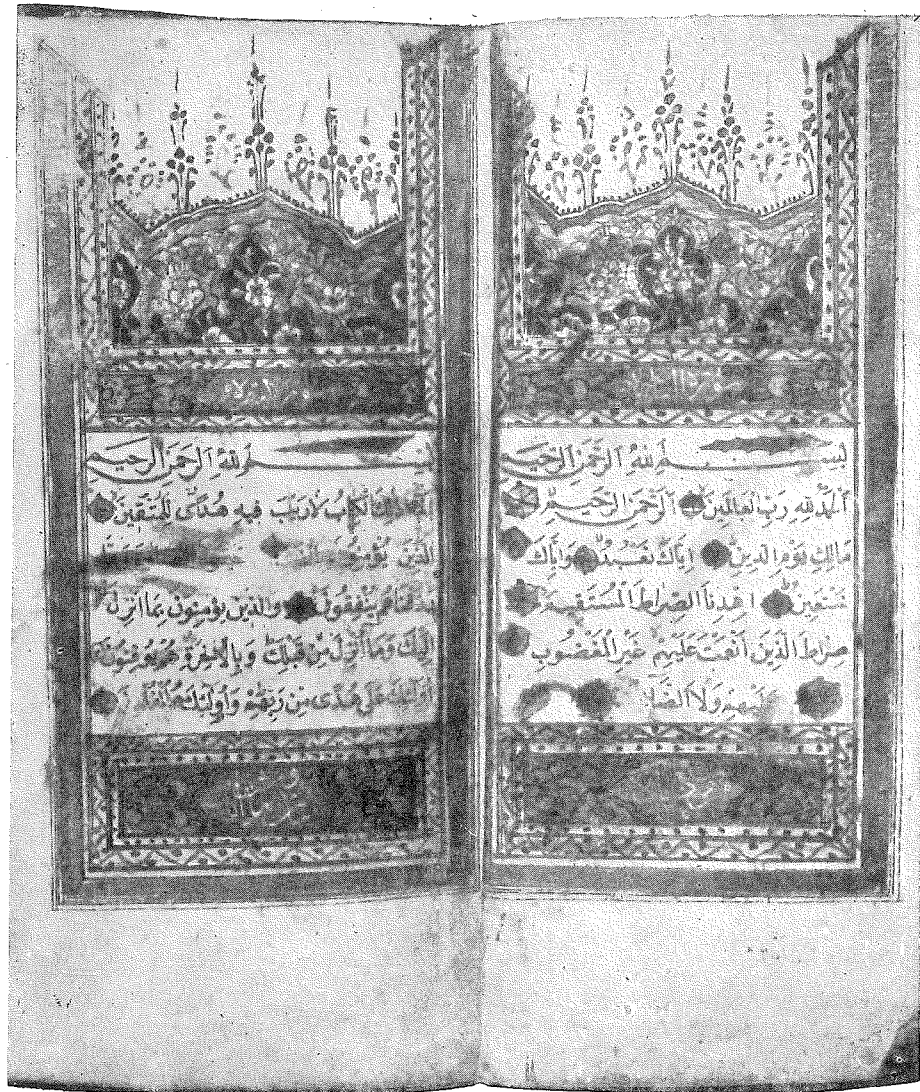 بِسْمِ اللهِ الرَّحْمٰنِ الرَّحِيمِ
اَلْحَمْدُ لِلّٰهِ رَبِّ الْعَالَمِينَ اَلرَّحْمٰنِ الرَّحِيمِ
مَالِكِ يَوْمِ الدِّينِ اِيَّاكَ نَعْبُدُ وَاِيَّاكَ
نَسْتَعِينُ اِهْدِنَا الصِّرَاطَ الْمُسْتَقِيمَ
صِرَاطَ الَّذِينَ اَنْعَمْتَ عَلَيْهِمْ غَيْرِ الْمَغْضُوبِ
عَلَيْهِمْ وَلَا الضَّا
بِسْمِ اللهِ الرَّحْمٰنِ الرَّحِيمِ
ذٰلِكَ الْكِتَابُ لَا رَيْبَ فِيهِ هُدًى لِلْمُتَّقِينَ
الَّذِينَ يُؤْمِنُونَ
يُنْفِقُونَ وَالَّذِينَ يُؤْمِنُونَ بِمَا اُنْزِلَ
اِلَيْكَ وَمَا اُنْزِلَ مِنْ قَبْلِكَ وَبِالْاٰخِرَةِ هُمْ يُوقِنُونَ
اُولٰئِكَ عَلٰى هُدًى مِنْ رَبِّهِمْ وَاُولٰئِكَ هُمُ